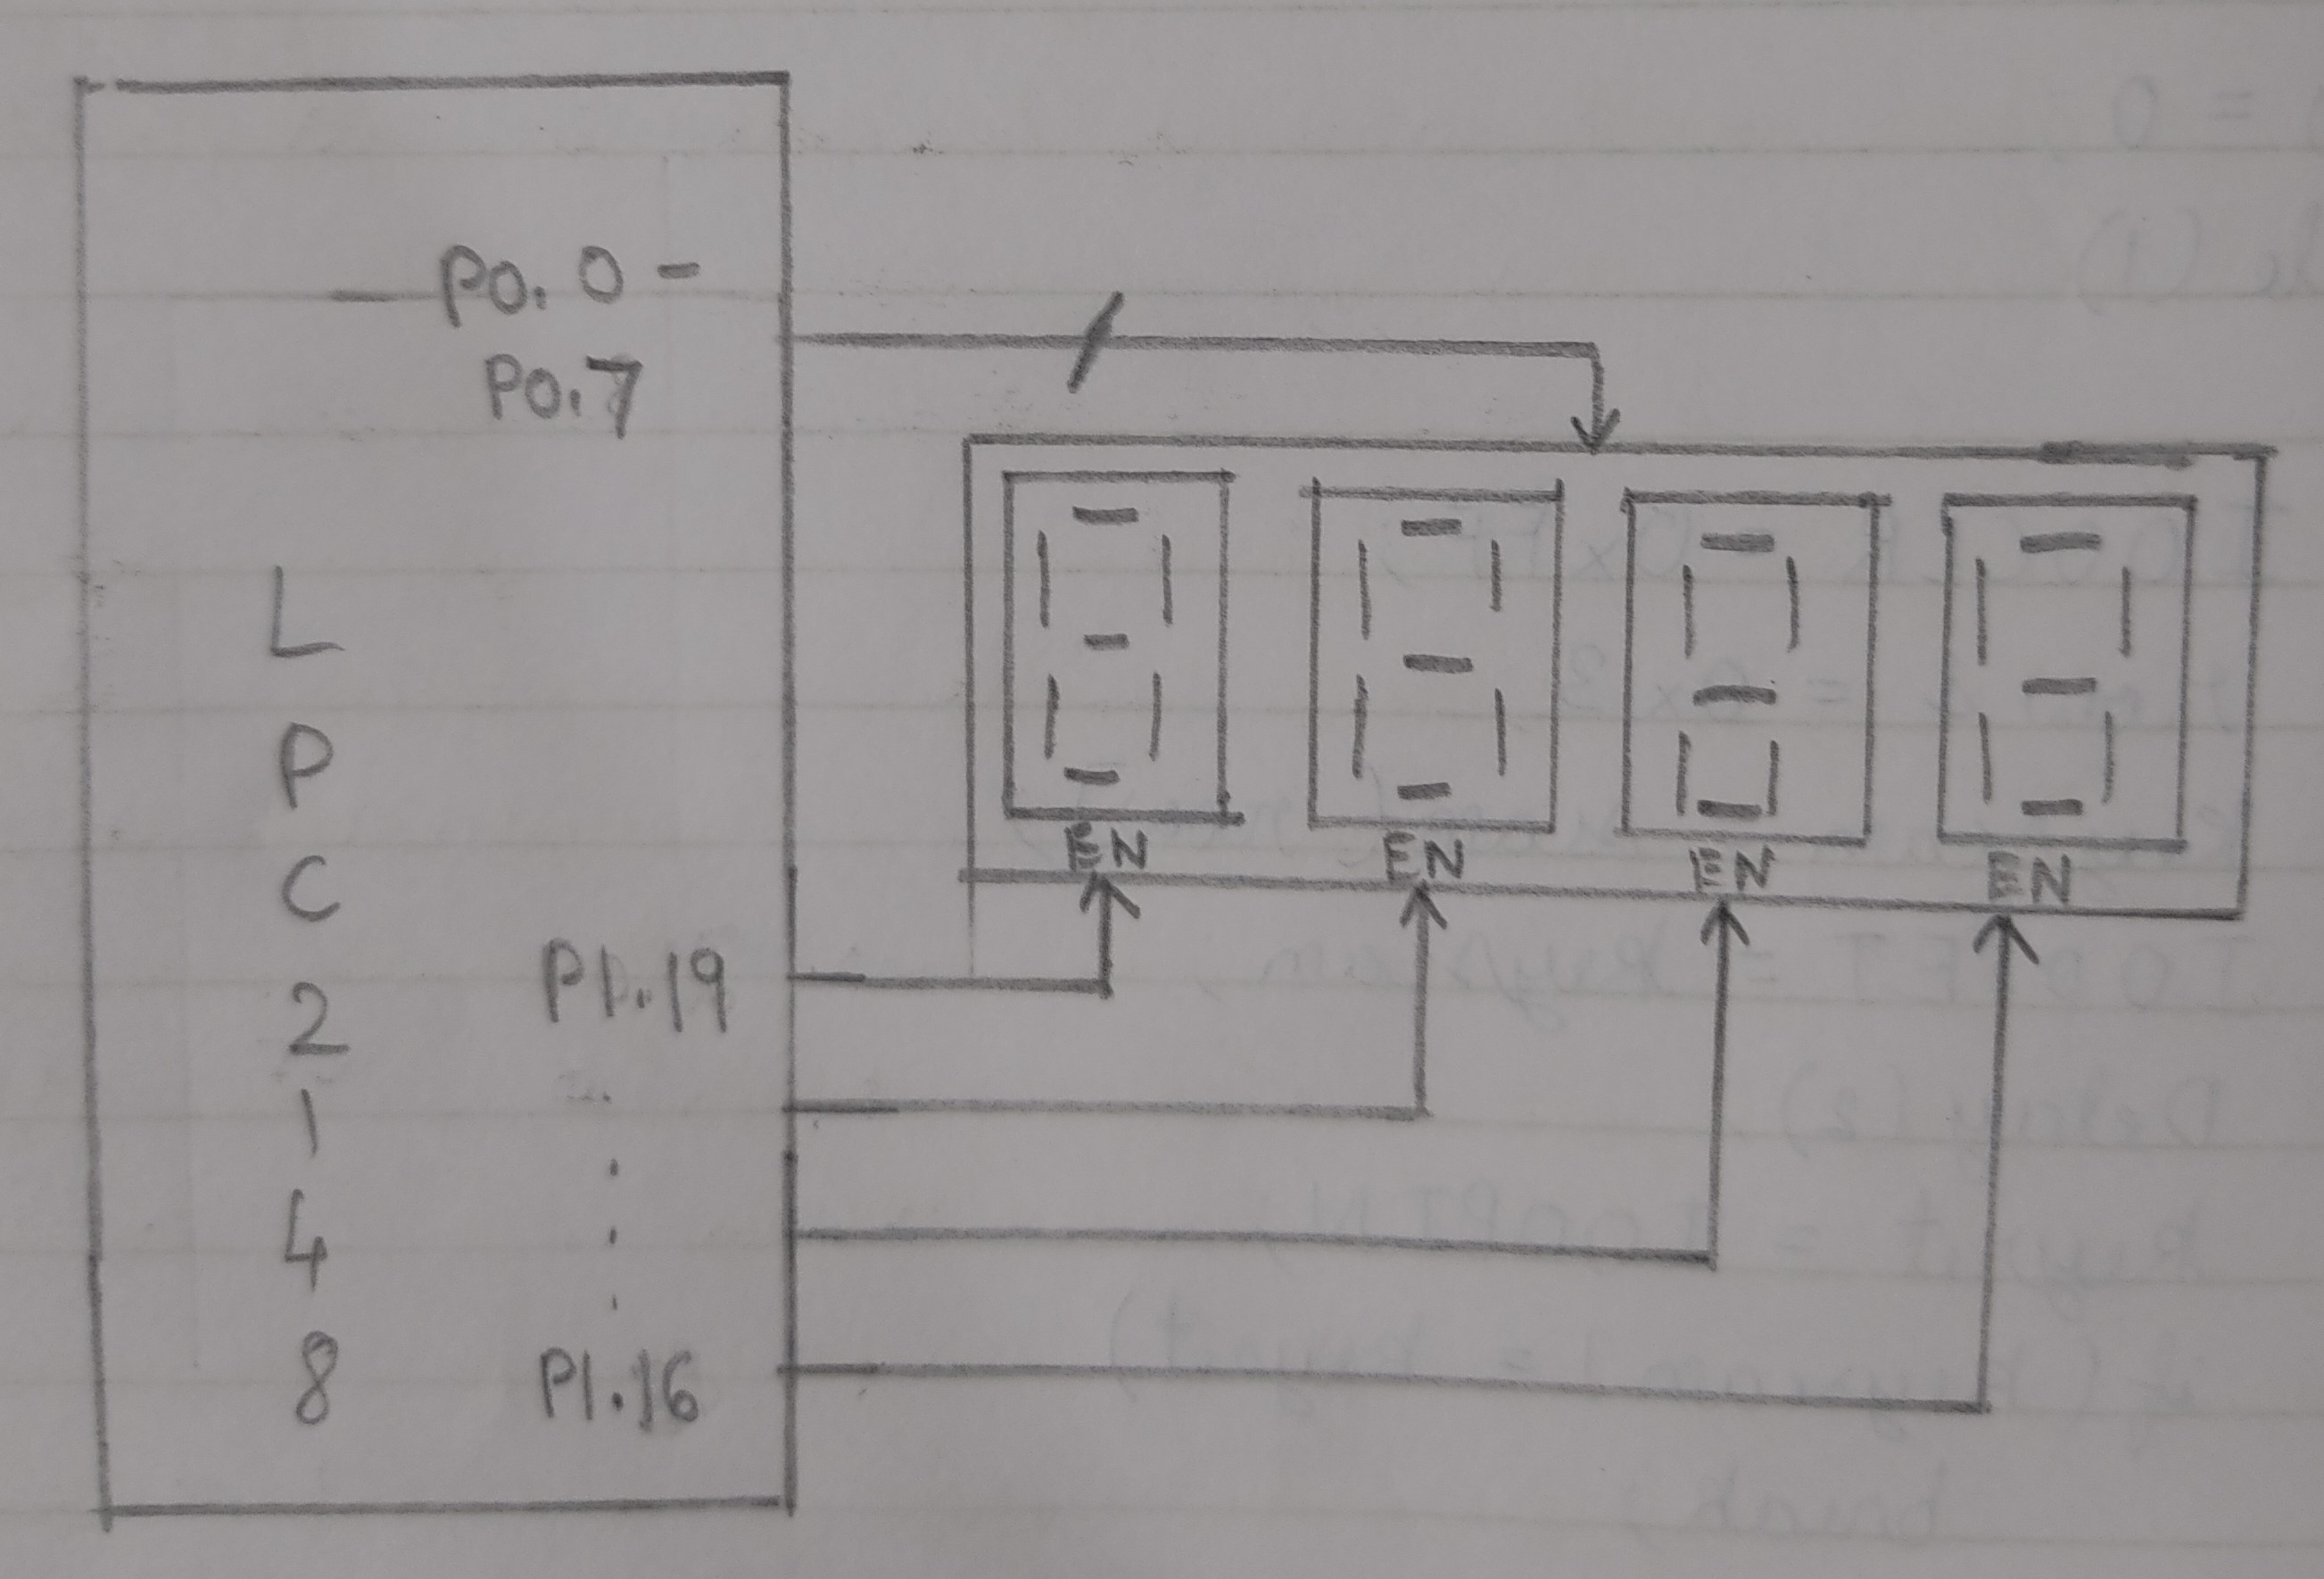 P0.0 -
P0.7
L
P
C
2
1
4
8
P1.19
P1.16
EN
EN
EN
EN